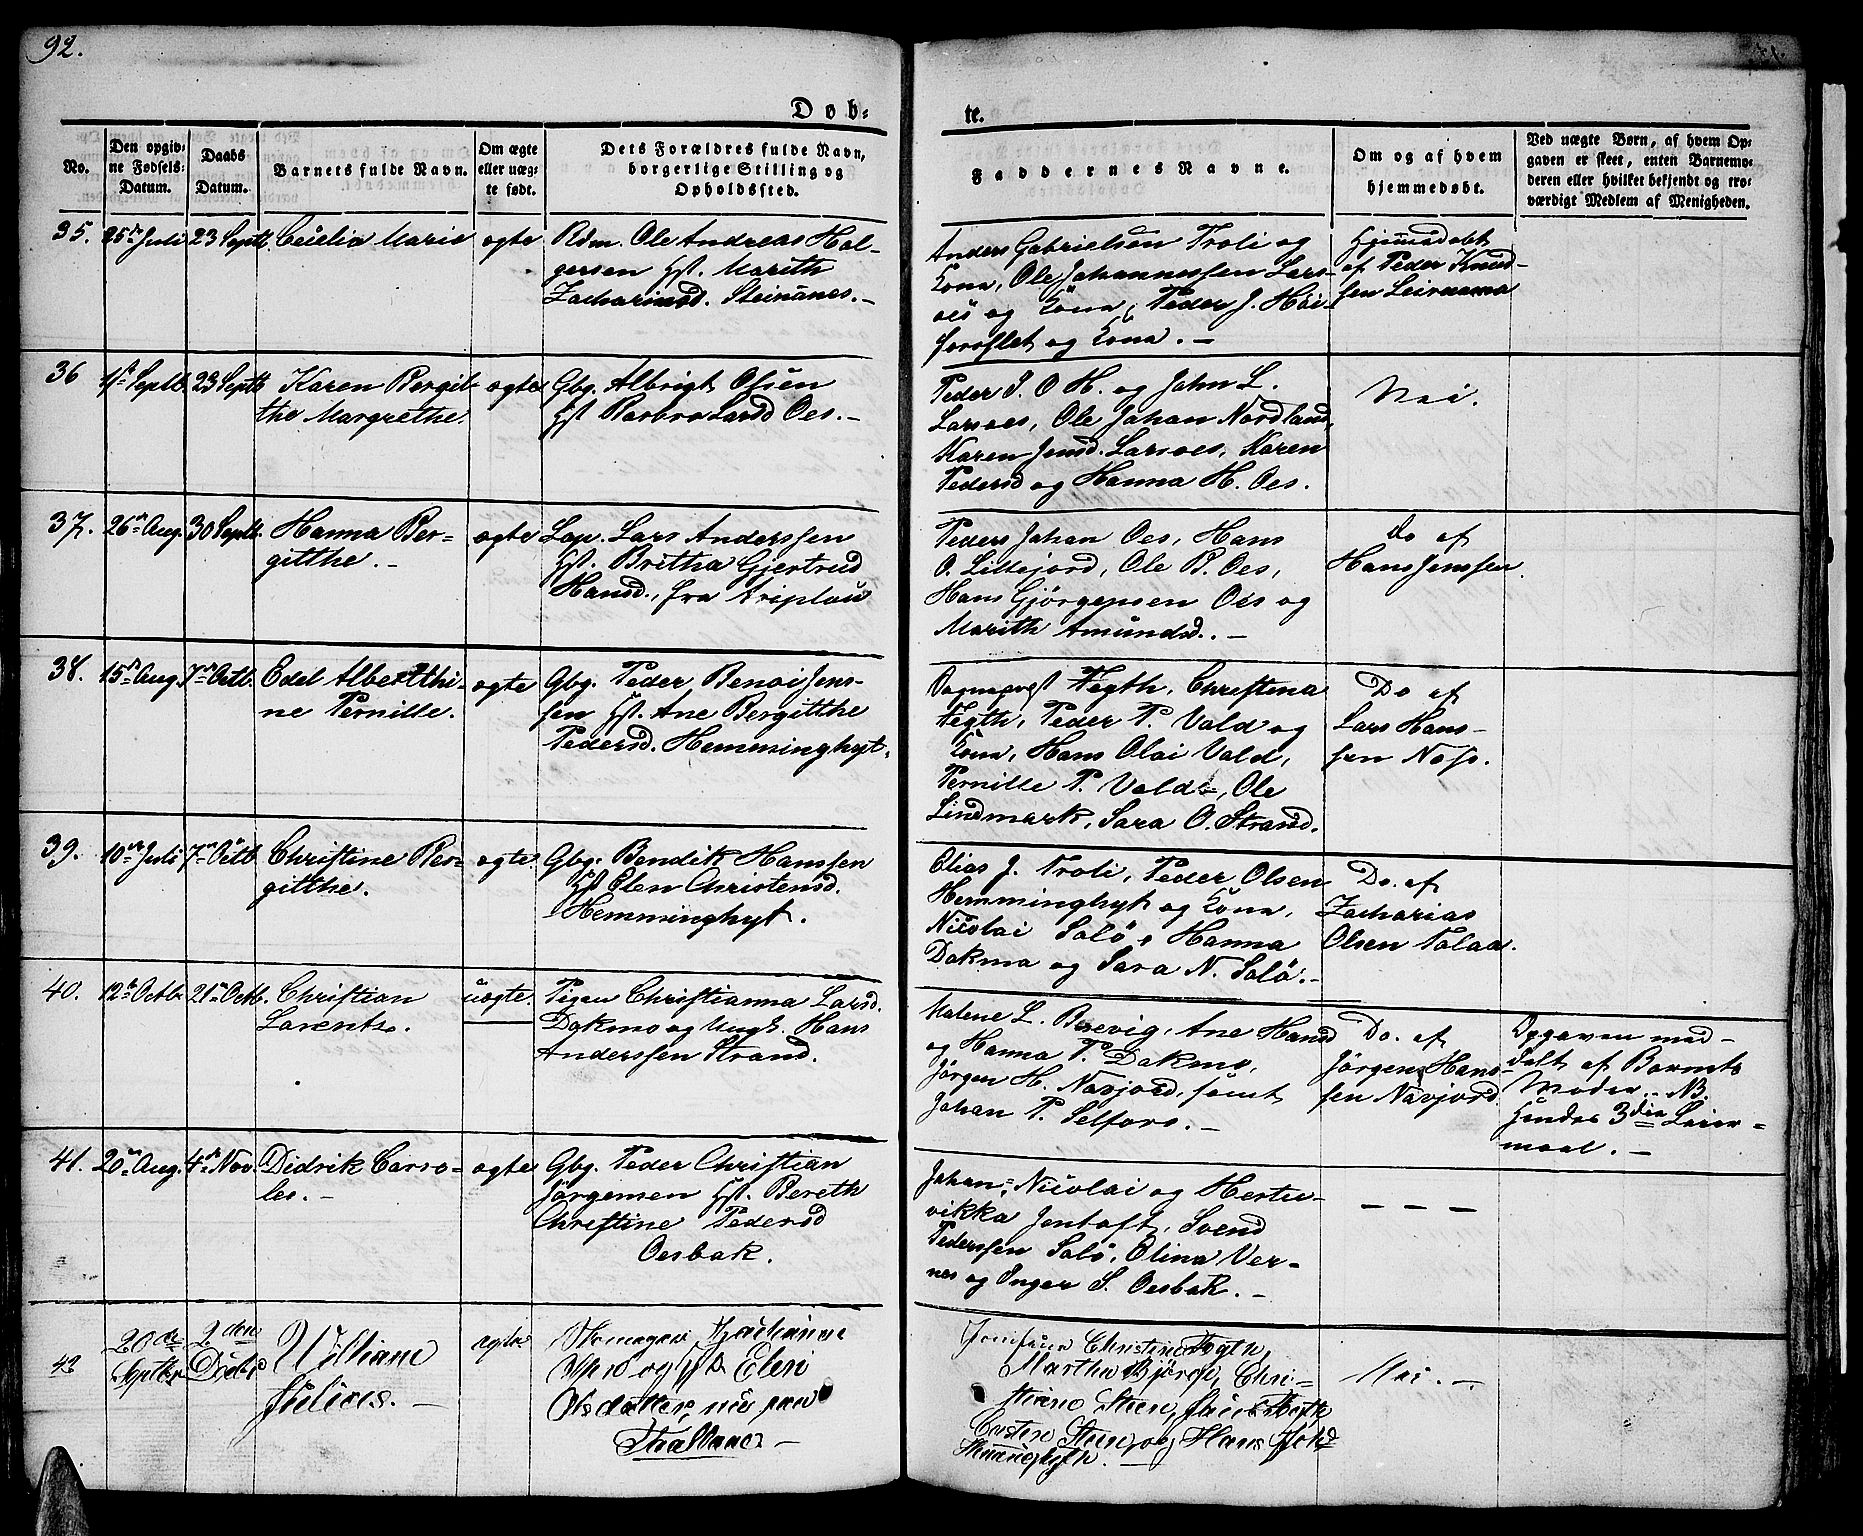 92.
Døb-
te.
No.
Den opgiv-
ne Fødsels-
Datum.
Daabs
Datum.
Barnets fulde Navn.
Om ægte
eller uæg-
te født.
Dets Forældres fulde Navn,
borgerlige Stilling og
Opholdssted.
Faddernes Navne.
Om og af hvem
hjemmedøbt.
Ved uægte Børn, af hvem Op-
gaven er skeet, enten Barnemo-
deren eller hvilket bekjendt og tro-
værdigt Medlem af Menigheden.
35.
25de Juli
23 Septb.
Cecilia Marie
ægte
Rdm. Ole Andreas Hol-
gersen Hst. Marith
Zachariasd. Steinänes.-
Anders Gabrielsen Troli og
Kona, Ole Johannessen Lars-
oes og Kona, Peder J. Höi-
forsslet og Kona.-
Hjemmedøbt
af Peder Knud-
sen Leirmoe
36
1ste Septb.
23 Septb
Karen Bergit-
the Margrethe.
ægte
Gbg. Albrigt Olsen
Hst Barbro Larsd Oes.-
Peder J. O H. og John L.
Larsoes, Ole Johan Nordland,
Karen Jensd. Larsoes, Karen
Pedersd og Hanna H. Oes.
Nei.
37.
26de Aug.
30 Septb.
Hanna Ber-
gitthe.-
ægte
Lap. Lars Anderssen
Hst. Britha Gjertrud
Hansd., fra Ariplöu
Peder Johan Oes, Hans
O. Lillejord, Ole P. Oes,
Hans Gjörgensen Oes og
Marith Amundsd.-
Do af
Hans Jenssen.
38.
15de Aug.
7de Octb.
Edel Alberthi-
ne Pernille.
ægte
Gbg. Peder Benoi Jens-
sen Hst. Ane Bergitthe
Pedersd. Hemminghyt.
Sognepræst Hegth, Christina
Hegth, Peder P. Vold og
Kona, Hans Olai Vold,
Pernille P. Vold, Ole
Lindmark, Sara O. Strand.
Do af
Lars Hans-
sen Næss.
39.
10de Juli
7de Octb
Christine Ber-
gitthe.
ægte
Gbg. Bendik Hanssen
Hst Elen Christensd.
Hemminghyt.
Elias J. Troli, Peder Olsen
Hemminghyt og Kona,
Nicolai Solö, Hanna
Dokmo og Sara N. Solö.-
Do. af
Zacharias
Olsen Talaa.
40.
12te Octbr
21de Octb.
Christian
Lorents.
uægte.
Pigen Christianna Larsd.
Dokmo og Ungk. Hans
Anderssen Strand.
Malene L. Brevig, Ane Hansd
og Hanna P. Dokmo,
Jörgen H. Navjord, samt
Johan P. Selfors.-
Do. af
Jörgen Hans-
sen Navjord
Opgaven med-
delt af Barnets
Moder.- NB.
Hendes 3die Leier-
maal.-
41.
20de Aug.
4de Nov.
Didrik Carso-
les.-
ægte
Gbg. Peder Christian
Jörgensen Hst. Bereth
Christine Pedersd
Oesbak.
Johan, Nicolai og Hertu-
vikka Jentoft, Svend
Pederssen Solö, Elina Ver-
nes og Inger S. Oesbak.-
- - -
42
20de
Septbr
2den
Decbr
Villiam
Julius.-
ægte
og Hst Elen
Olsdatter, nu paa
Jomfrue Christine Hegth,
Martha Björn, Chri-
Nei.-